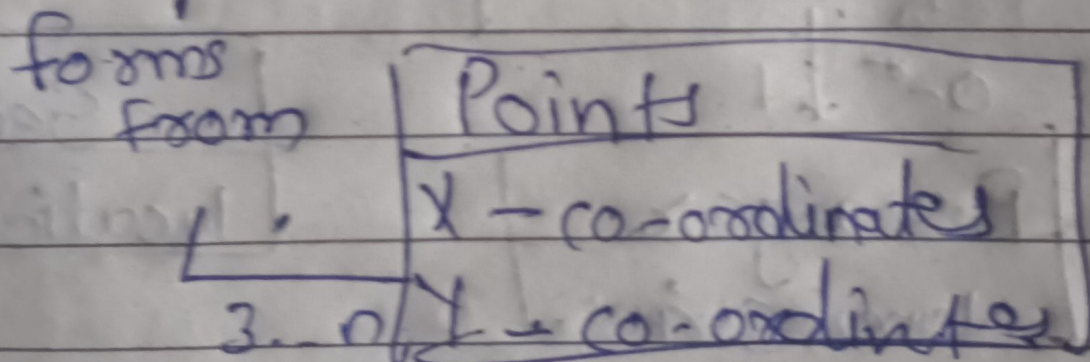 forms
from
Points
X - co-ordinates
3...n
Y - co-ordintes